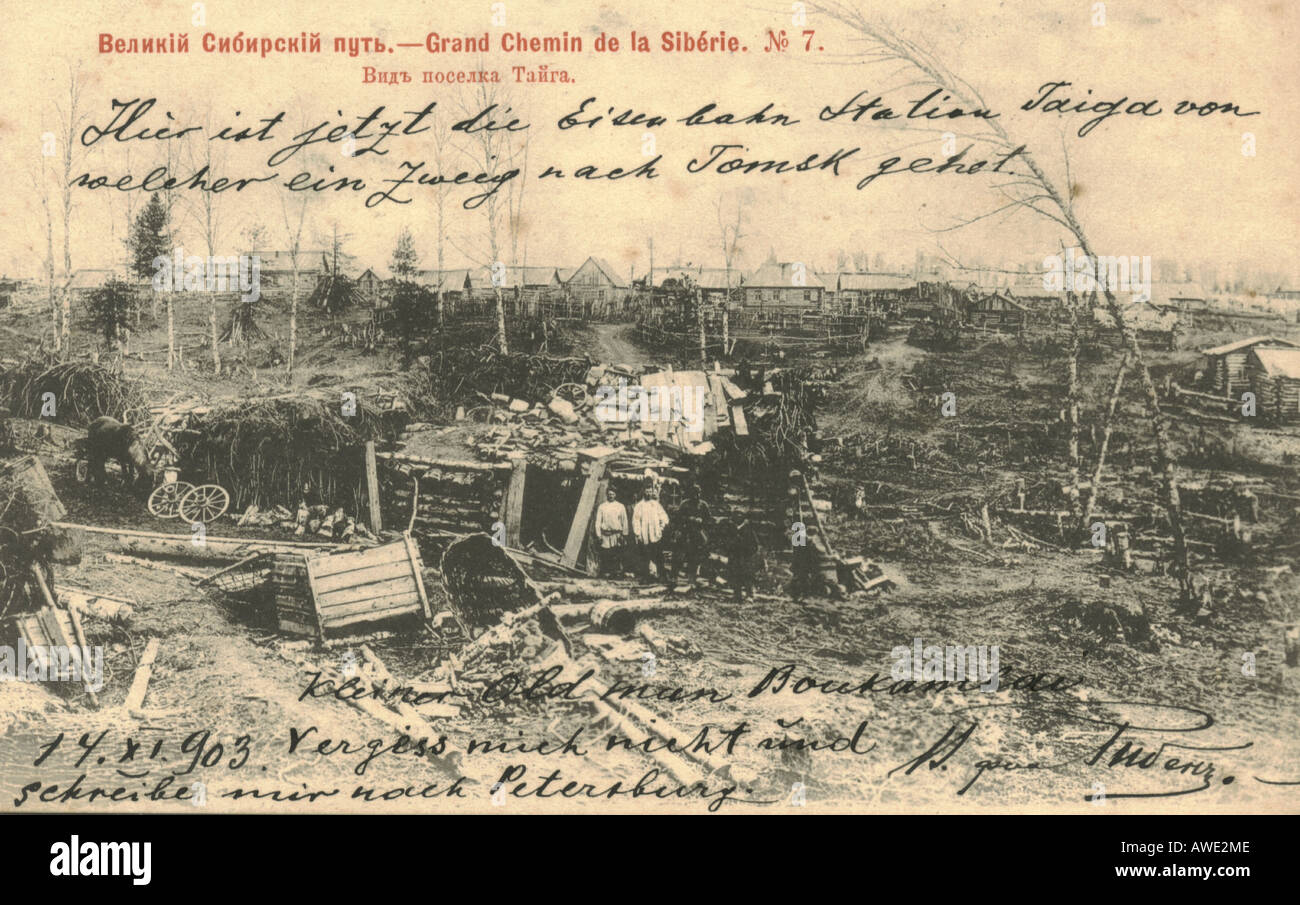 Великій Сибирскій путь.—Grand Chemin de la Sibérie. № 7.
Видъ поселка Тайга.
Hier ist jetzt die Eisenbahn Station Taiga von
welcher ein Zweig nach Tomsk gehet.
Kleiner Old man
14. XI. 903. Vergess mich nicht und
schreibe mir nach Petersburg.
alamy
Image ID: AWE2ME
www.alamy.com